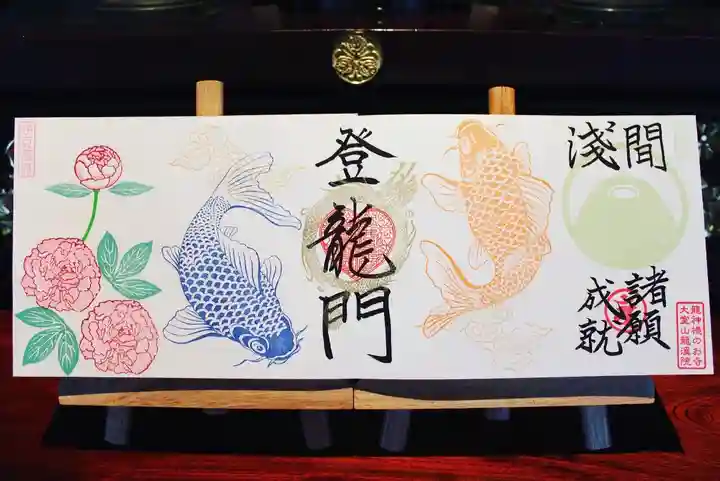 淺間
諸願
成就
龍神様のお寺
大室山龍溪院
登龍門